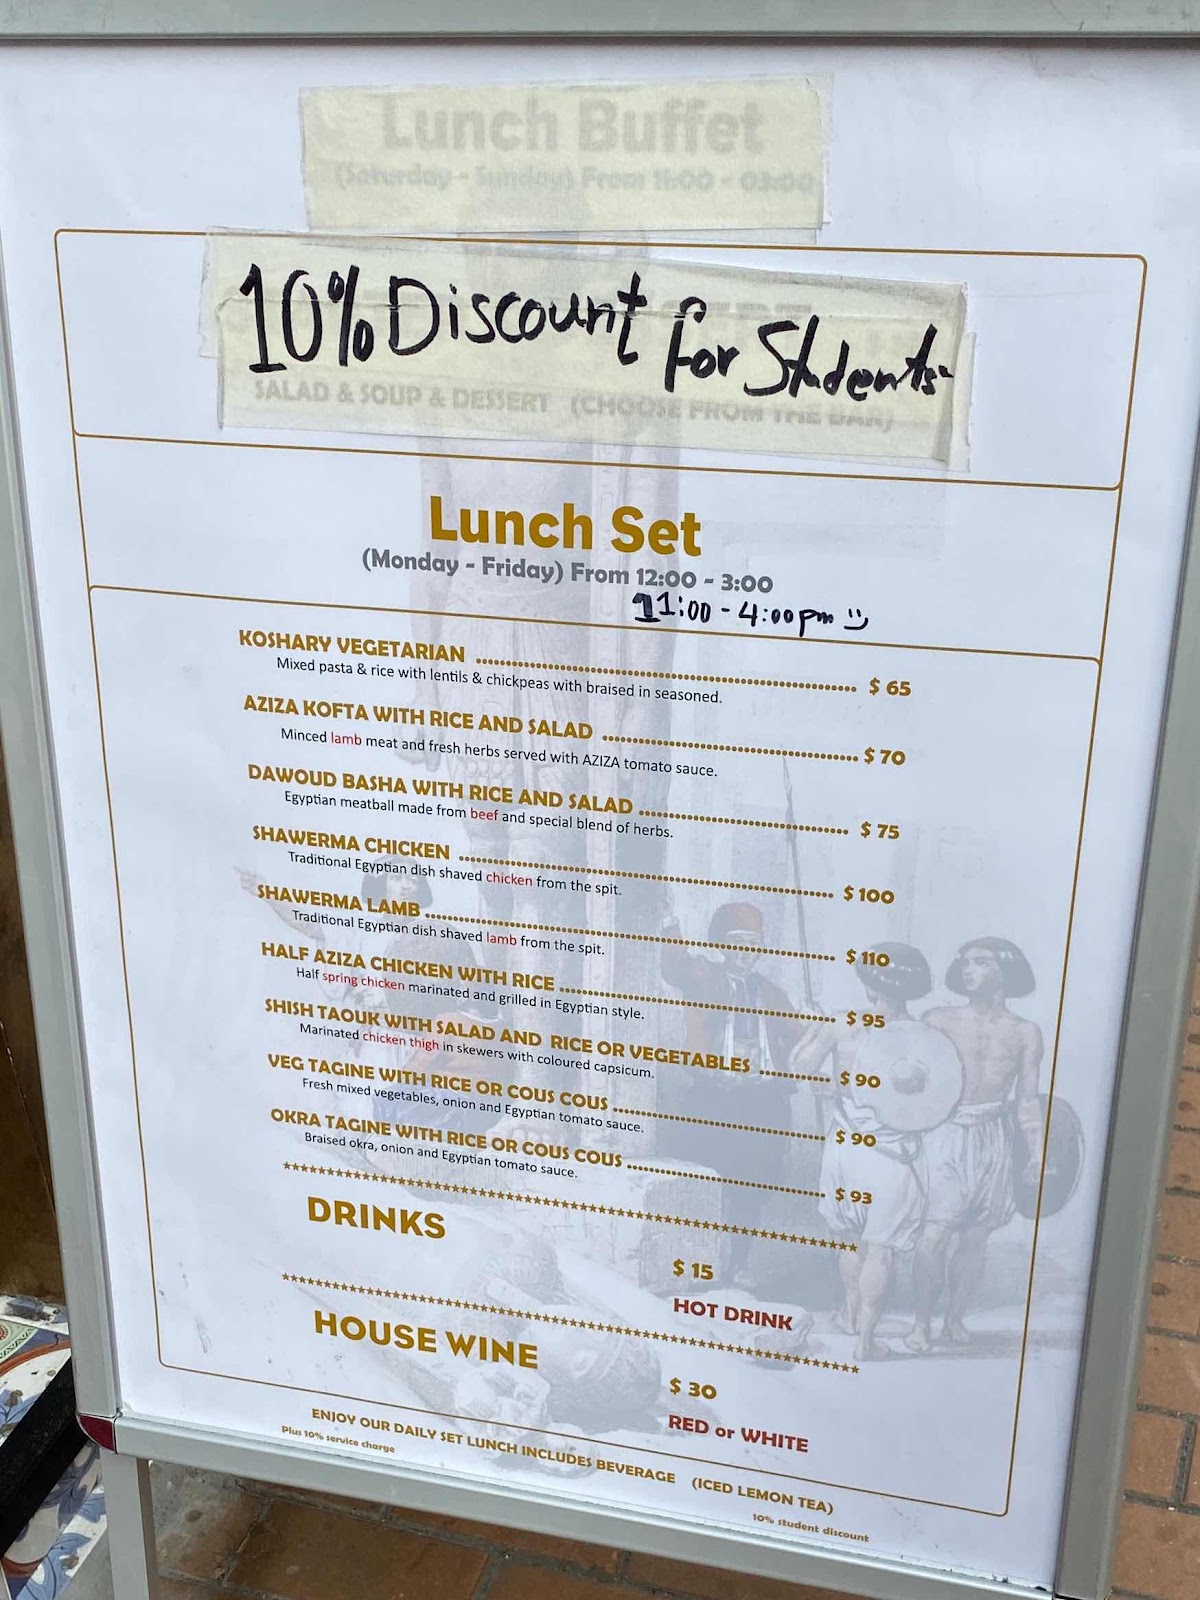 Lunch Buffet
(Saturday - Sunday) From 11:00 - 03:00
10% Discount for Students
SALAD & SOUP & DESSERT (CHOOSE FROM THE BAR)
Lunch Set
(Monday - Friday) From 12:00 - 3:00
11:00 - 4:00pm
KOSHARY VEGETARIAN $ 65
Mixed pasta & rice with lentils & chickpeas with braised in seasoned.
AZIZA KOFTA WITH RICE AND SALAD $ 70
Minced lamb meat and fresh herbs served with AZIZA tomato sauce.
DAWOUD BASHA WITH RICE AND SALAD $ 75
Egyptian meatball made from beef and special blend of herbs.
SHAWERMA CHICKEN $ 100
Traditional Egyptian dish shaved chicken from the spit.
SHAWERMA LAMB $ 110
Traditional Egyptian dish shaved lamb from the spit.
HALF AZIZA CHICKEN WITH RICE $ 95
Half spring chicken marinated and grilled in Egyptian style.
SHISH TAOUK WITH SALAD AND RICE OR VEGETABLES $ 90
Marinated chicken thigh in skewers with coloured capsicum.
VEG TAGINE WITH RICE OR COUS COUS $ 90
Fresh mixed vegetables, onion and Egyptian tomato sauce.
OKRA TAGINE WITH RICE OR COUS COUS $ 93
Braised okra, onion and Egyptian tomato sauce.
DRINKS
$ 15
HOT DRINK
HOUSE WINE
$ 30
RED or WHITE
ENJOY OUR DAILY SET LUNCH INCLUDES BEVERAGE (ICED LEMON TEA)
Plus 10% service charge
10% student discount